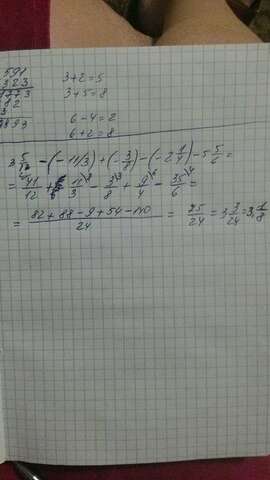 591
323
1773
3+2=5
3+5=8
6-4=2
6+2=8
3 5/12 - (- 11/3) + (- 3/8) - (-2 1/4) - 5 5/6 =
= 41/12 + 11/3 - 3/8 + 9/4 - 35/6 =
= (82 + 88 - 9 + 54 - 140)/24 = 75/24 = 3 3/24 = 3 1/8